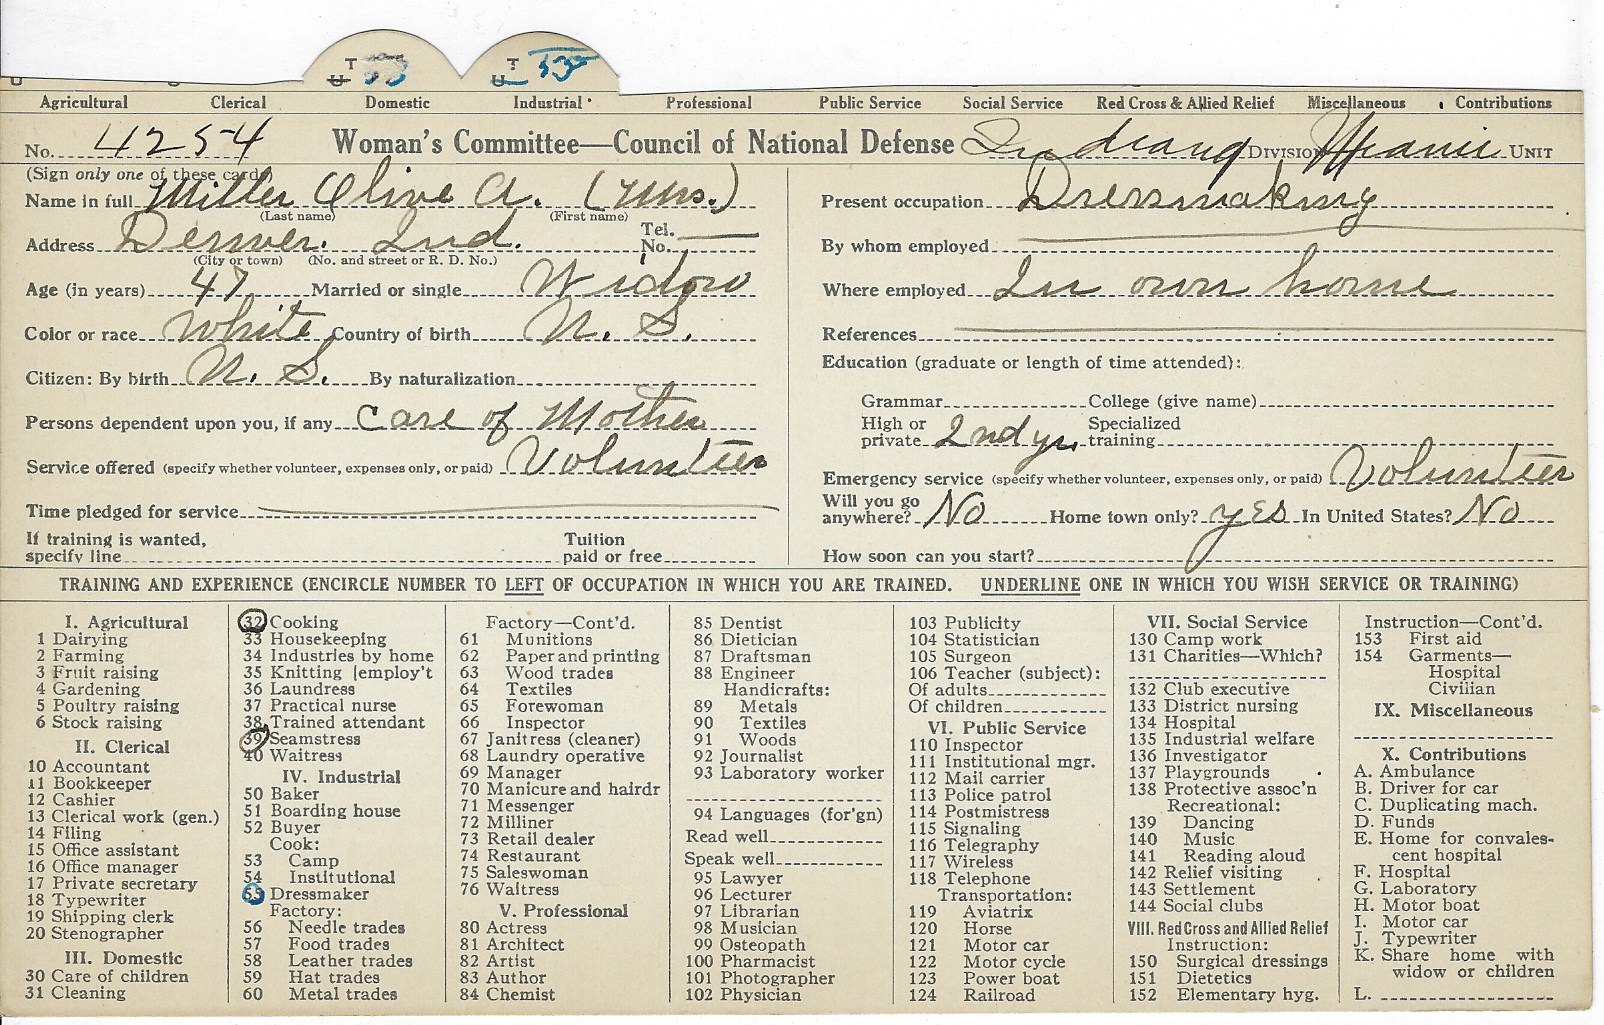 T T
U U 55
Agricultural Clerical Domestic Industrial Professional Public Service Social Service Red Cross & Allied Relief Miscellaneous Contributions
No. 4254 Woman's Committee—Council of National Defense Indiana DIVISION Miami UNIT
(Sign only one of these cards)
Name in full Miller Olive A. (Mrs.)
(Last name) (First name)
Address Denver. Ind. Tel. No. —
(City or town) (No. and street or R. D. No.)
Age (in years) 47 Married or single Widow
Color or race White Country of birth U. S.
Citizen: By birth U. S. By naturalization
Persons dependent upon you, if any Care of Mother
Service offered (specify whether volunteer, expenses only, or paid) Volunteer
Time pledged for service
If training is wanted, specify line Tuition paid or free
Present occupation Dressmaking
By whom employed
Where employed In own home
References
Education (graduate or length of time attended):
Grammar College (give name)
High or private 2nd yr. Specialized training
Emergency service (specify whether volunteer, expenses only, or paid) Volunteer
Will you go anywhere? No Home town only? yes In United States? No
How soon can you start?
TRAINING AND EXPERIENCE (ENCIRCLE NUMBER TO LEFT OF OCCUPATION IN WHICH YOU ARE TRAINED. UNDERLINE ONE IN WHICH YOU WISH SERVICE OR TRAINING)
I. Agricultural
1 Dairying
2 Farming
3 Fruit raising
4 Gardening
5 Poultry raising
6 Stock raising
II. Clerical
10 Accountant
11 Bookkeeper
12 Cashier
13 Clerical work (gen.)
14 Filing
15 Office assistant
16 Office manager
17 Private secretary
18 Typewriter
19 Shipping clerk
20 Stenographer
III. Domestic
30 Care of children
31 Cleaning
32 Cooking
33 Housekeeping
34 Industries by home
35 Knitting [employ't
36 Laundress
37 Practical nurse
38 Trained attendant
39 Seamstress
40 Waitress
IV. Industrial
50 Baker
51 Boarding house
52 Buyer
Cook:
53 Camp
54 Institutional
55 Dressmaker
Factory:
56 Needle trades
57 Food trades
58 Leather trades
59 Hat trades
60 Metal trades
Factory—Cont'd.
61 Munitions
62 Paper and printing
63 Wood trades
64 Textiles
65 Forewoman
66 Inspector
67 Janitress (cleaner)
68 Laundry operative
69 Manager
70 Manicure and hairdr
71 Messenger
72 Milliner
73 Retail dealer
74 Restaurant
75 Saleswoman
76 Waitress
V. Professional
80 Actress
81 Architect
82 Artist
83 Author
84 Chemist
85 Dentist
86 Dietician
87 Draftsman
88 Engineer
Handicrafts:
89 Metals
90 Textiles
91 Woods
92 Journalist
93 Laboratory worker
94 Languages (for'gn)
Read well
Speak well
95 Lawyer
96 Lecturer
97 Librarian
98 Musician
99 Osteopath
100 Pharmacist
101 Photographer
102 Physician
103 Publicity
104 Statistician
105 Surgeon
106 Teacher (subject):
Of adults
Of children
VI. Public Service
110 Inspector
111 Institutional mgr.
112 Mail carrier
113 Police patrol
114 Postmistress
115 Signaling
116 Telegraphy
117 Wireless
118 Telephone
Transportation:
119 Aviatrix
120 Horse
121 Motor car
122 Motor cycle
123 Power boat
124 Railroad
VII. Social Service
130 Camp work
131 Charities—Which?
132 Club executive
133 District nursing
134 Hospital
135 Industrial welfare
136 Investigator
137 Playgrounds
138 Protective assoc'n
Recreational:
139 Dancing
140 Music
141 Reading aloud
142 Relief visiting
143 Settlement
144 Social clubs
VIII. Red Cross and Allied Relief
Instruction:
150 Surgical dressings
151 Dietetics
152 Elementary hyg.
Instruction—Cont'd.
153 First aid
154 Garments—
Hospital
Civilian
IX. Miscellaneous
X. Contributions
A. Ambulance
B. Driver for car
C. Duplicating mach.
D. Funds
E. Home for convales-
cent hospital
F. Hospital
G. Laboratory
H. Motor boat
I. Motor car
J. Typewriter
K. Share home with
widow or children
L.